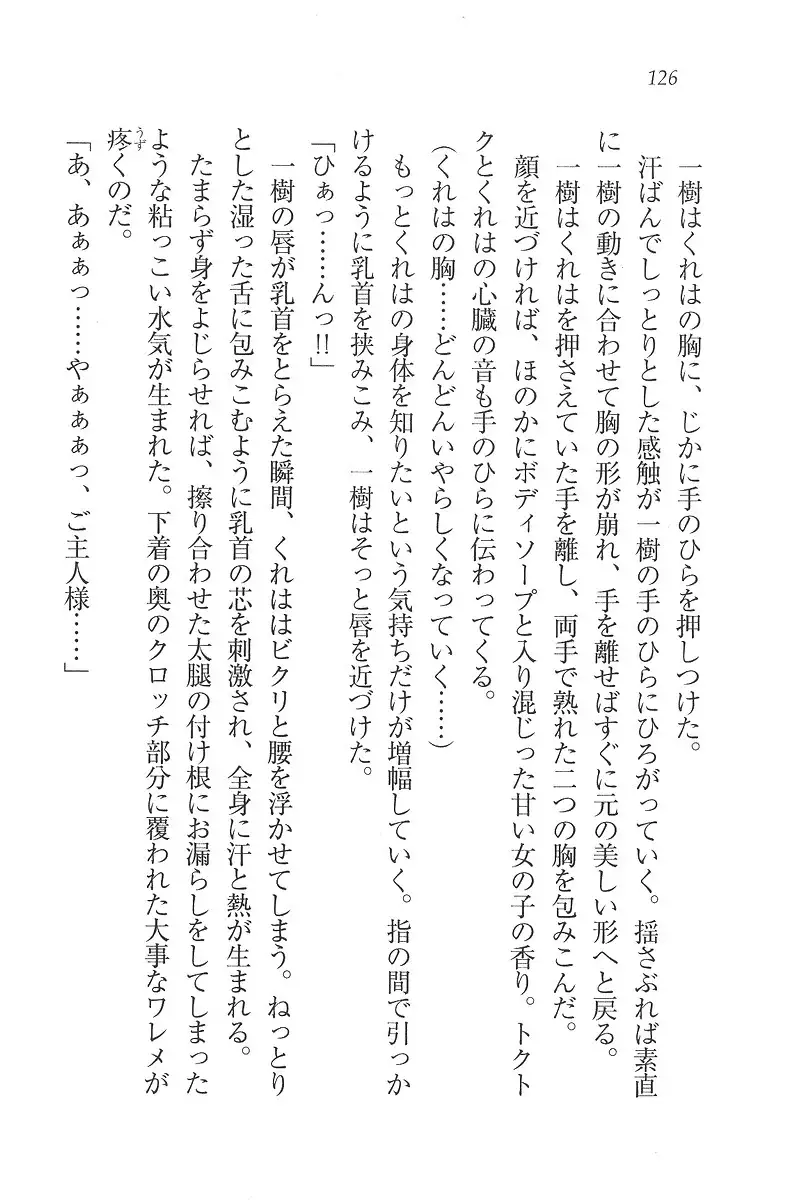 126
一樹はくれはの胸に、じかに手のひらを押しつけた。
汗ばんでしっとりとした感触が一樹の手のひらにひろがっていく。揺さぶれば素直
に一樹の動きに合わせて胸の形が崩れ、手を離せばすぐに元の美しい形へと戻る。
一樹はくれはを押さえていた手を離し、両手で熟れた二つの胸を包みこんだ。
顔を近づければ、ほのかにボディソープと入り混じった甘い女の子の香り。トクト
クとくれはの心臓の音も手のひらに伝わってくる。
(くれはの胸……どんどんいやらしくなっていく……)
もっとくれはの身体を知りたいという気持ちだけが増幅していく。指の間で引っか
けるように乳首を挟みこみ、一樹はそっと唇を近づけた。
「ひぁっ……んっ!!」
一樹の唇が乳首をとらえた瞬間、くれははビクリと腰を浮かせてしまう。ねっとり
とした湿った舌に包みこむように乳首の芯を刺激され、全身に汗と熱が生まれる。
たまらず身をよじらせれば、擦り合わせた太腿の付け根にお漏らしをしてしまった
ような粘っこい水気が生まれた。下着の奥のクロッチ部分に覆われた大事なワレメが
疼くのだ。
うず
「あ、あぁぁっ……やぁぁぁっ、ご主人様……」